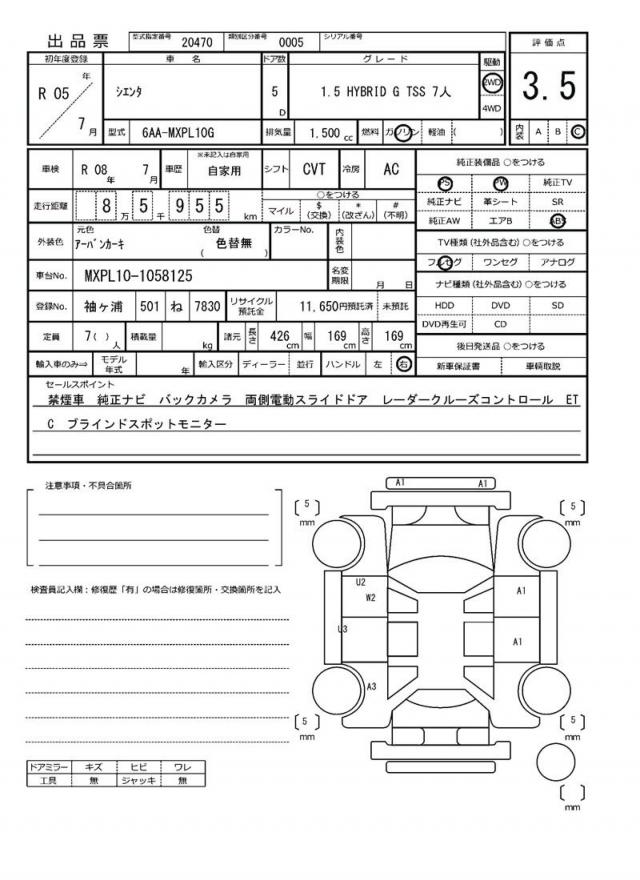 出品票 型式指定番号 20470 類別区分番号 0005 シリアル番号
評価点
3.5
内装 A B C
初年度登録 車名 ドア数 グレード 駆動
R 05 年 7 月
シエンタ
5 D
1.5 HYBRID G TSS 7人
2WD
4WD
型式 6AA-MXPL10G 排気量 1.500 cc 燃料 ガソリン 軽油 ( )
車検 R 08 年 7 月 車歴 ※未記入は自家用 自家用 シフト CVT 冷房 AC
走行距離 8 万 5 千 9 5 5 km
○をつける
マイル $ (交換) * (改ざん) # (不明)
外装色 元色 アーバンカーキ 色替 ( 色替無 ) カラーNo. 内装色
車台No. MXPL10-1058125 名変期限 月 日
登録No. 袖ヶ浦 501 ね 7830 リサイクル預託金 11,650円預託済 未預託
定員 7( ) 人 積載量 kg 諸元 長さ 426 cm 幅 169 cm 高さ 169 cm
輸入車のみ⇒ モデル年式 年 輸入区分 ディーラー 並行 ハンドル 左 右
純正装備品 ○をつける
PS PW 純正TV
純正ナビ 革シート SR
純正AW エアB ABS
TV種類(社外品含む) ○をつける
フルセグ ワンセグ アナログ
ナビ種類(社外品含む) ○をつける
HDD DVD SD
DVD再生可 CD
後日発送品 ○をつける
新車保証書 車輌取説
セールスポイント
禁煙車 純正ナビ バックカメラ 両側電動スライドドア レーダークルーズコントロール ET
C ブラインドスポットモニター
注意事項・不具合箇所
検査員記入欄:修復歴「有」の場合は修復箇所・交換箇所を記入
ドアミラー キズ ヒビ ワレ
工具 無 ジャッキ 無
A1 A1
5 mm
5 mm
U2
W2
A1
U3
A1
A3
5 mm
5 mm
mm